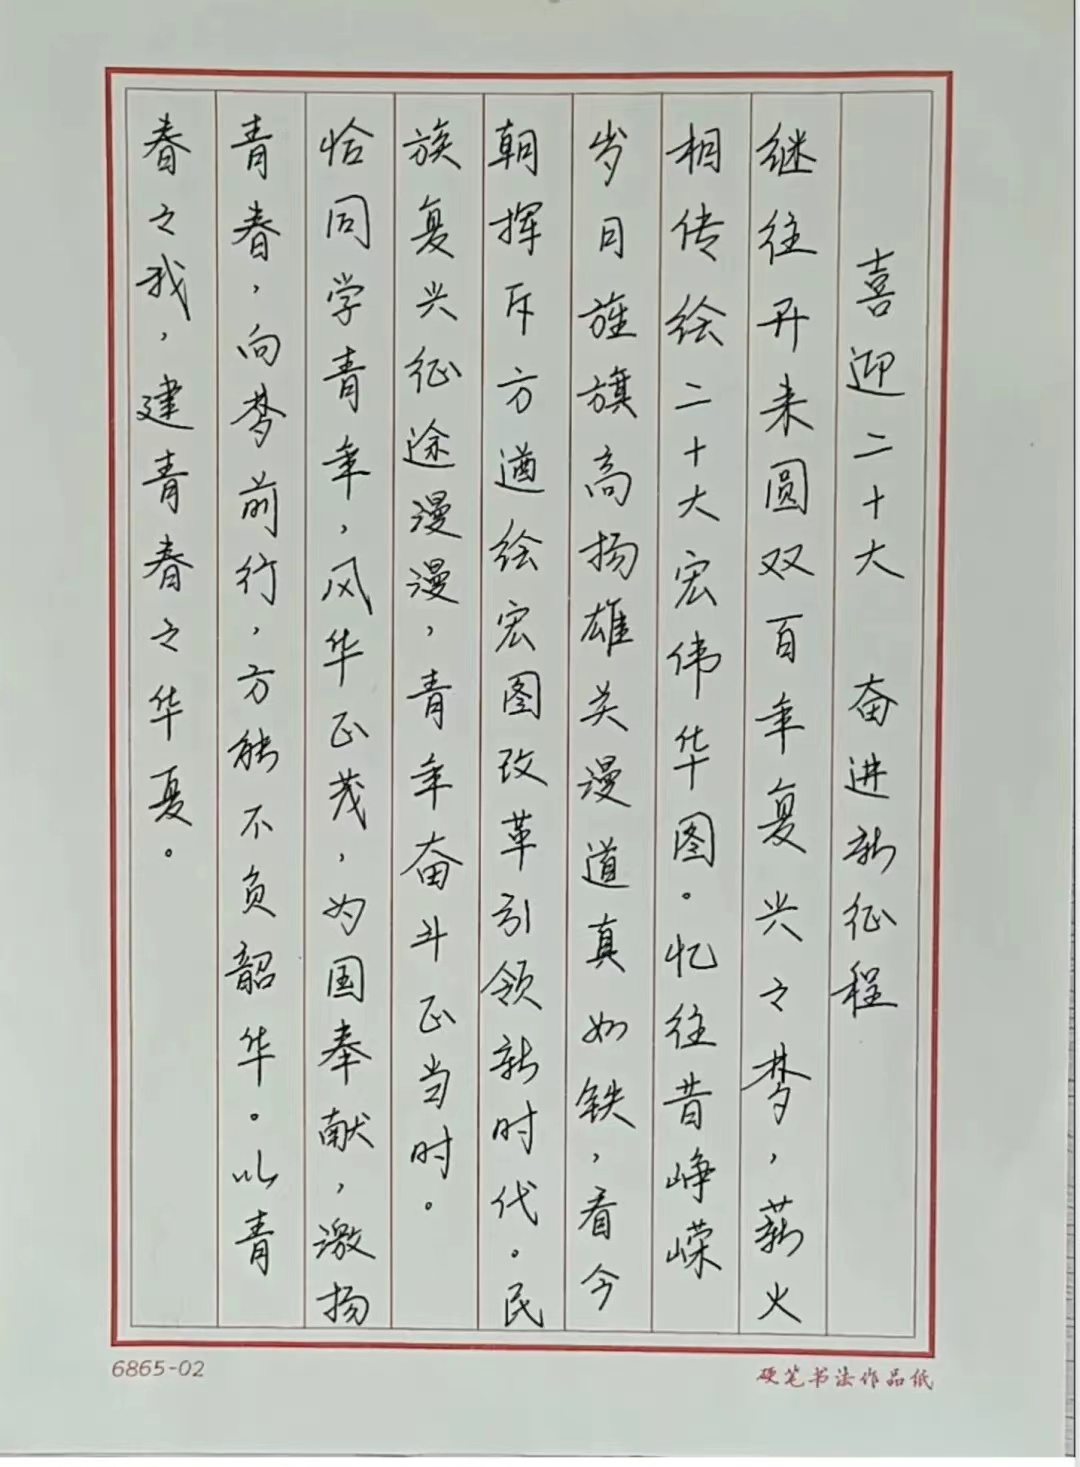 喜迎二十大 奋进新征程
继往开来圆双百年复兴之梦，薪火
相传绘二十大宏伟华图。忆往昔峥嵘
岁月旌旗高扬雄关漫道真如铁，看今
朝挥斥方遒绘宏图改革引领新时代。民
族复兴征途漫漫，青年奋斗正当时。
恰同学青年，风华正茂，为国奉献，激扬
青春，向梦前行，方能不负韶华。以青
春之我，建青春之华夏。
6865-02
硬笔书法作品纸